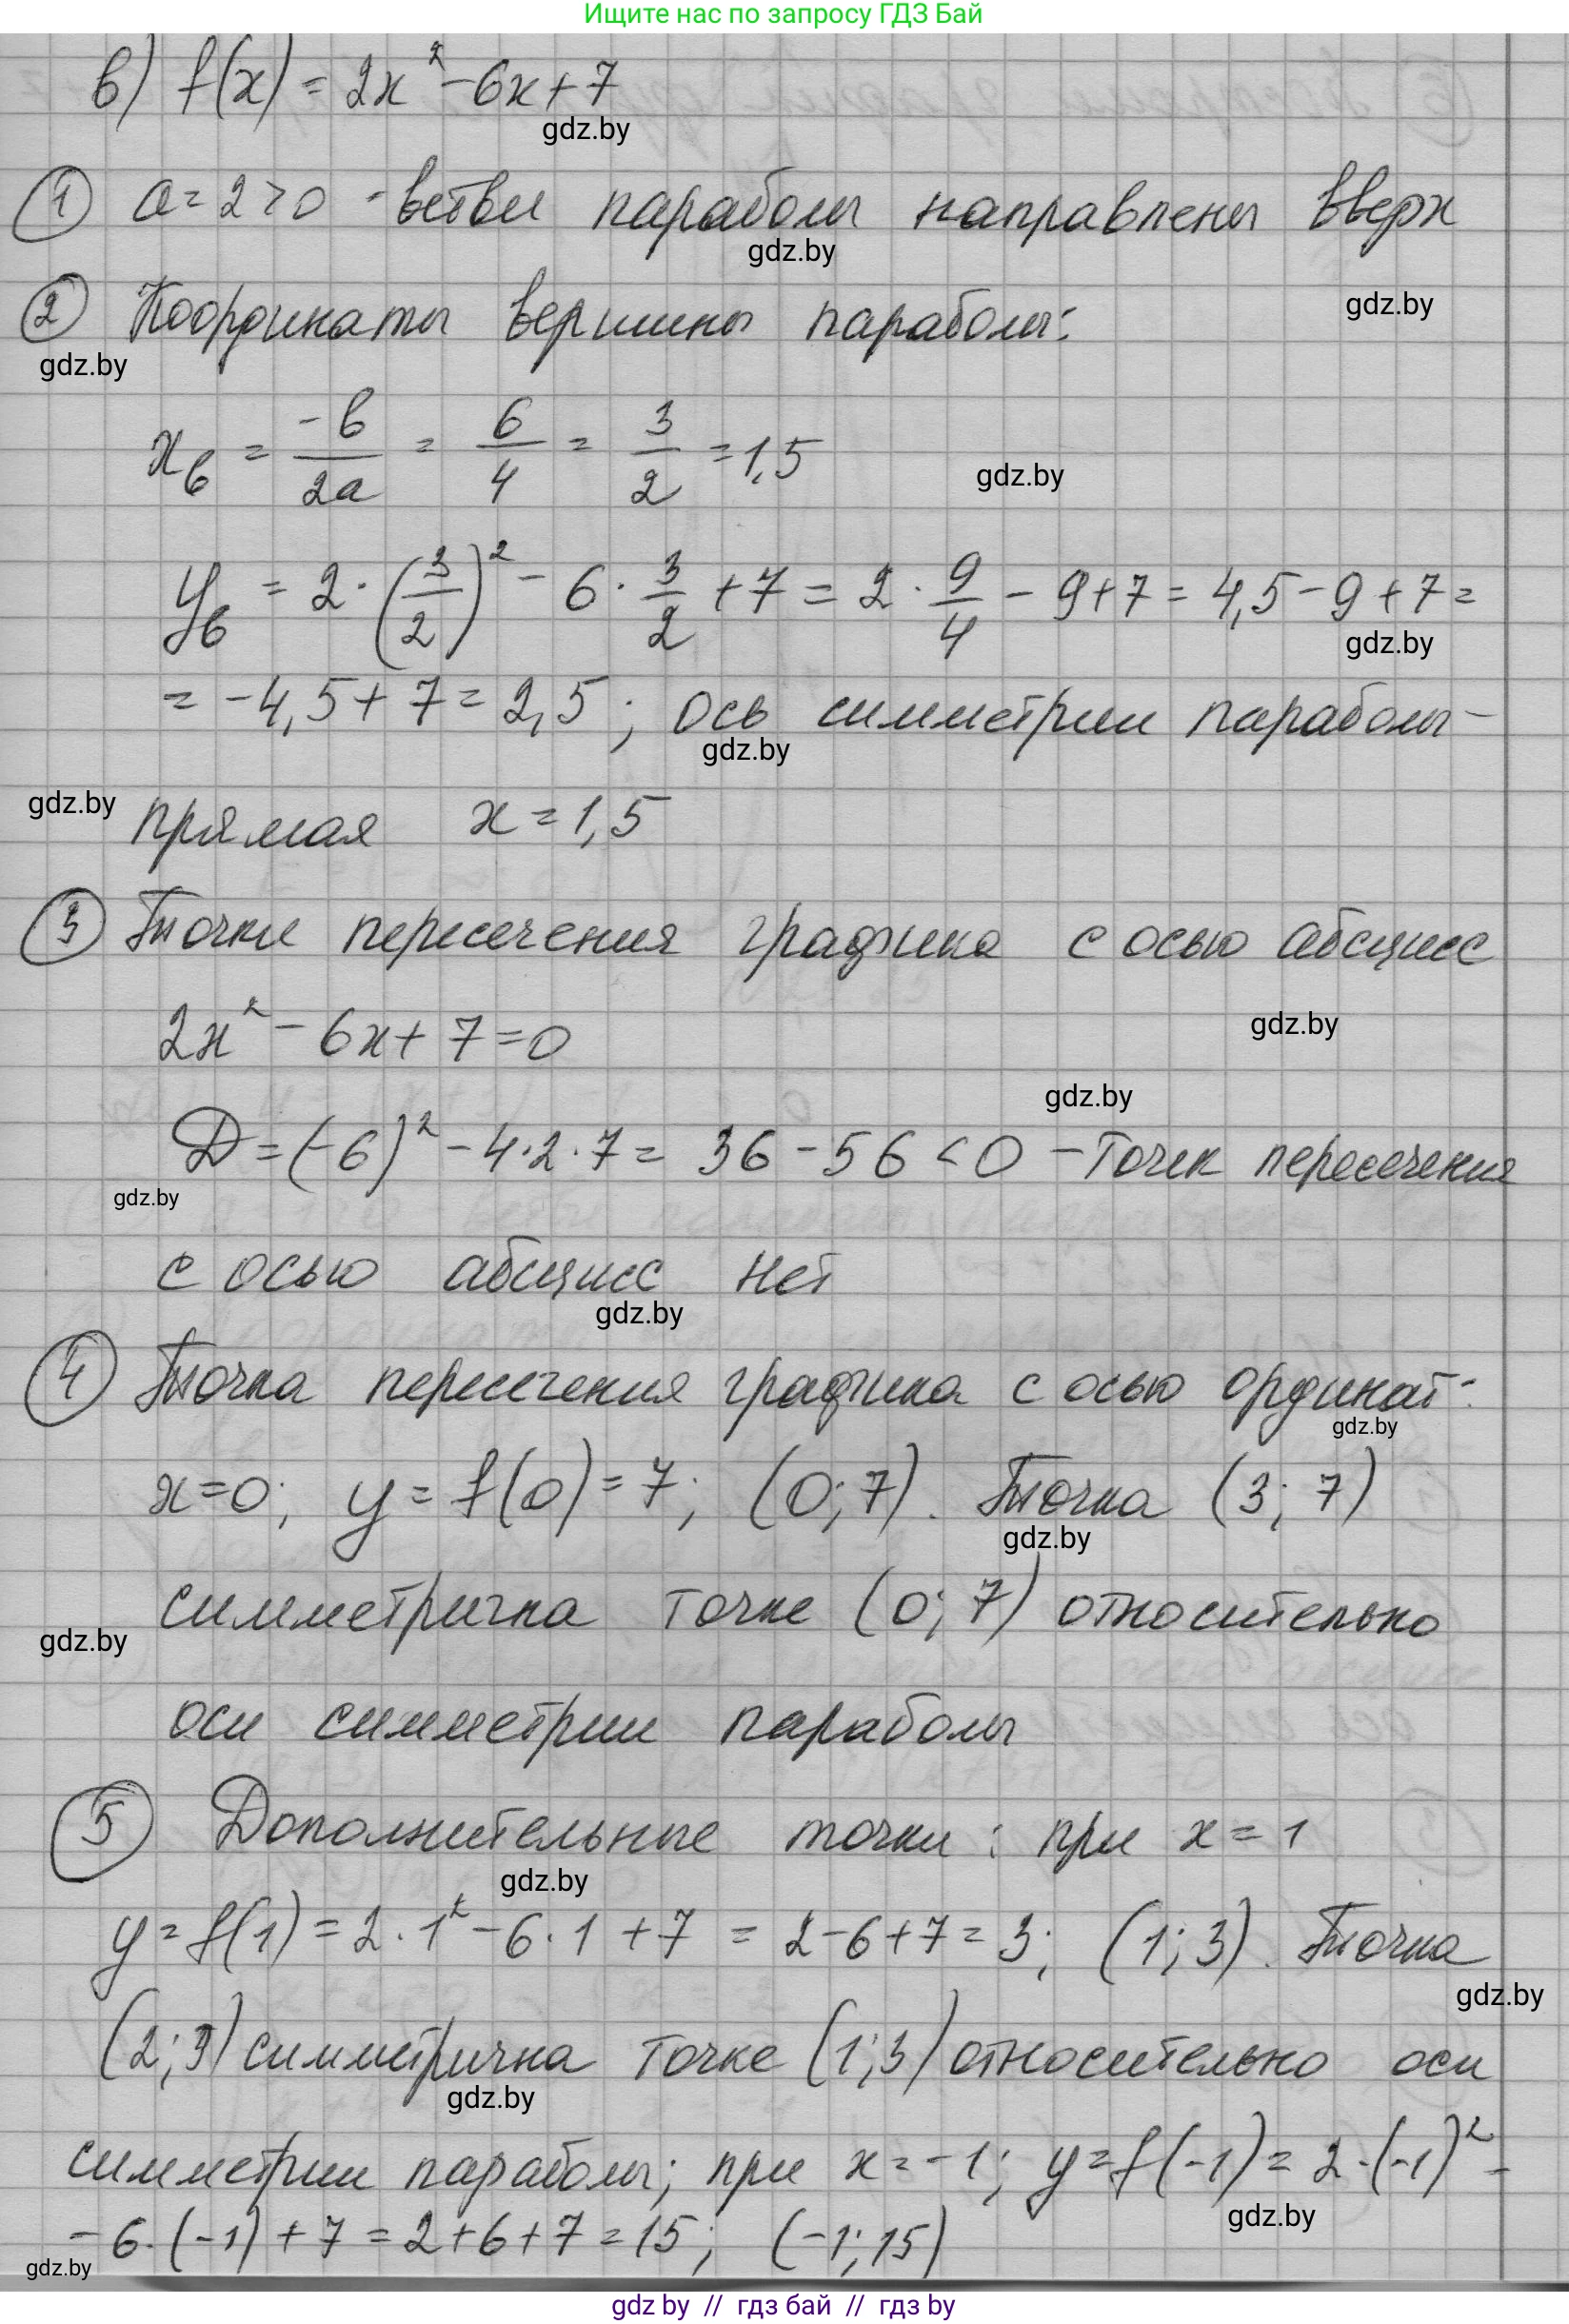 Ищите нас по запросу ГДЗ Бай
в) f(x) = 2x² - 6x + 7
gdz.by
① a = 2 > 0 - ветви параболы направлены вверх
gdz.by
② Координаты вершины параболы:
gdz.by
gdz.by
xв = -b/2a = 6/4 = 3/2 = 1,5
gdz.by
yв = 2 · (3/2)² - 6 · 3/2 + 7 = 2 · 9/4 - 9 + 7 = 4,5 - 9 + 7 =
gdz.by
= -4,5 + 7 = 2,5 ; ось симметрии параболы -
gdz.by
gdz.by
прямая x = 1,5
③ Точки пересечения графика с осью абсцисс
2x² - 6x + 7 = 0
gdz.by
gdz.by
D = (-6)² - 4·2·7 = 36 - 56 < 0 - точек пересечения
gdz.by
с осью абсцисс нет
gdz.by
④ Точка пересечения графика с осью ординат:
gdz.by
x = 0; y = f(0) = 7; (0; 7). Точка (3; 7)
gdz.by
симметрична точке (0; 7) относительно
gdz.by
оси симметрии параболы
⑤ Дополнительные точки : при x = 1
gdz.by
y = f(1) = 2 · 1² - 6 · 1 + 7 = 2 - 6 + 7 = 3; (1; 3). Точка
gdz.by
(2; 3) симметрична точке (1; 3) относительно оси
gdz.by
симметрии параболы; при x = -1; y = f(-1) = 2 · (-1)² -
gdz.by
- 6 · (-1) + 7 = 2 + 6 + 7 = 15; (-1; 15)
gdz.by
gdz by // гдз бай // гдз by